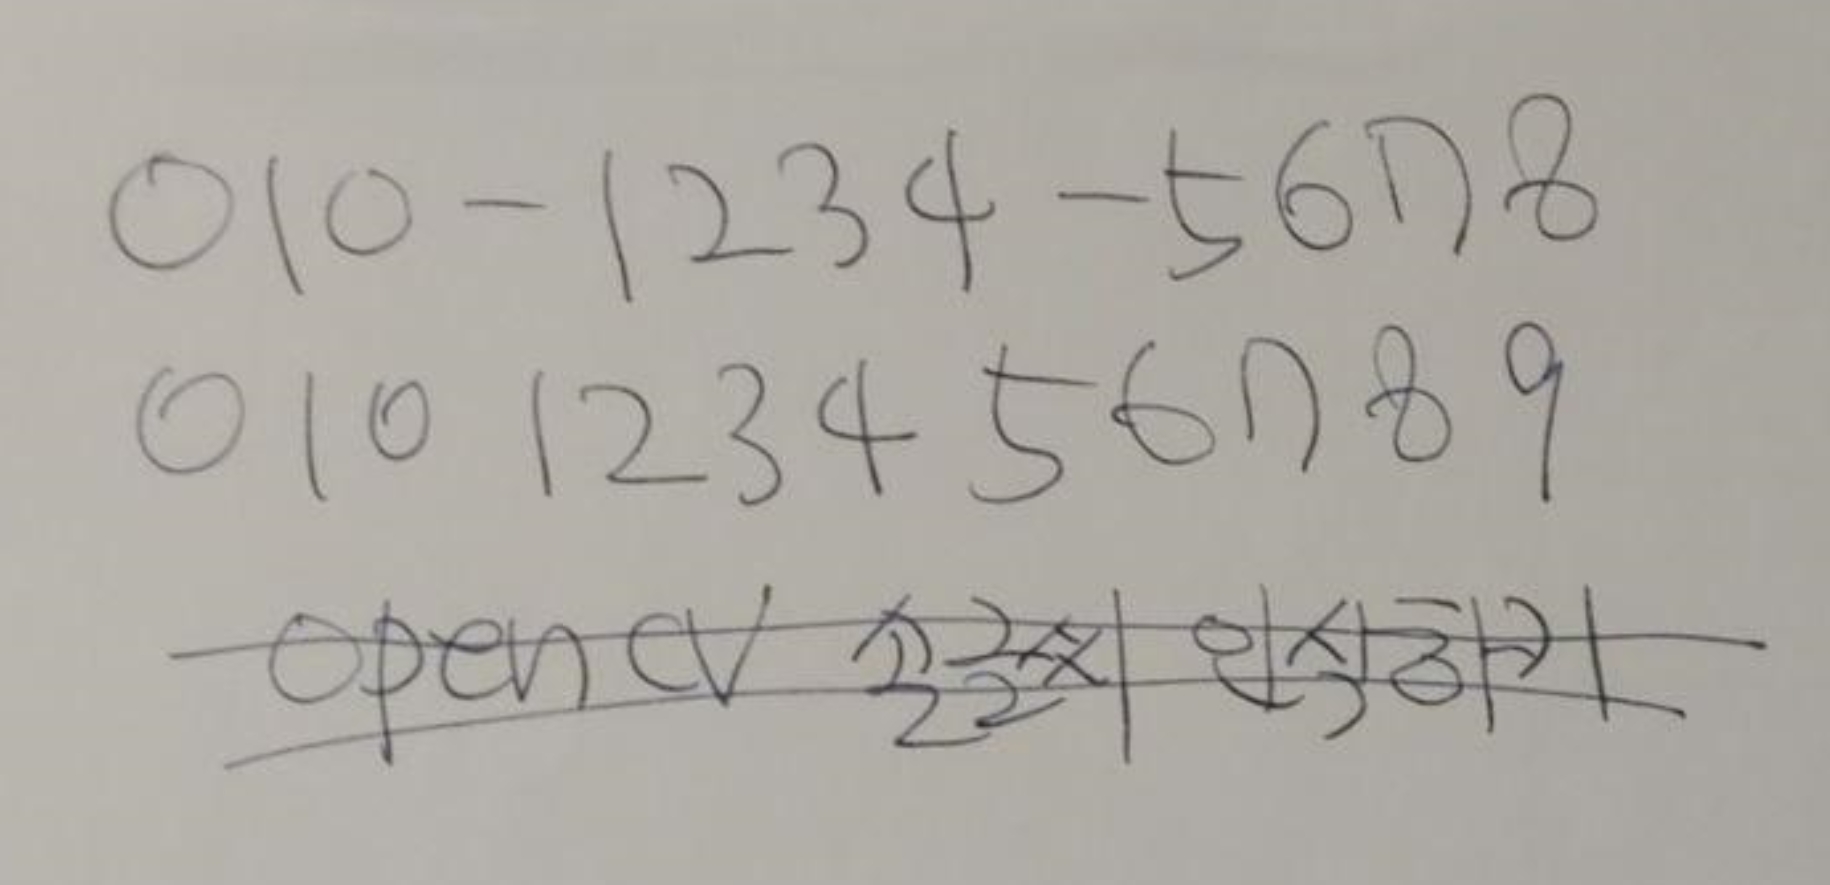 010-1234-5678
010 123456789
open CV 손글씨 인식하기